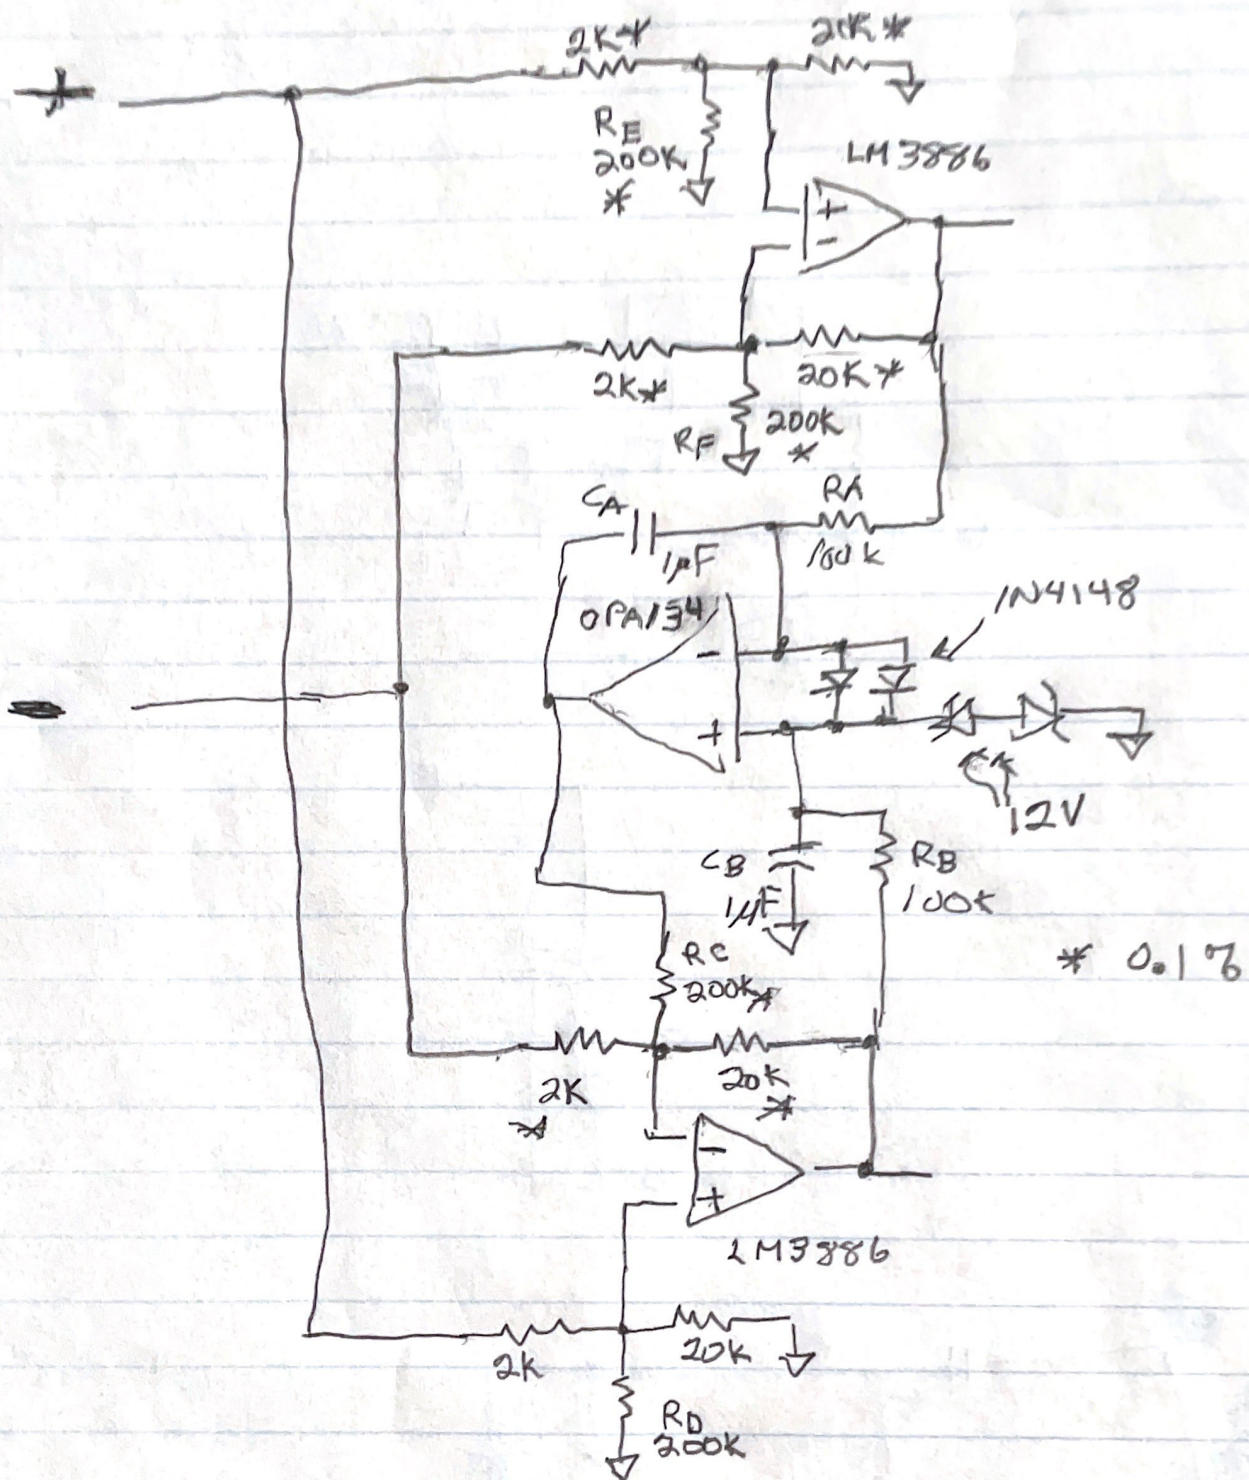 2K*
20K*
+
RE
200K
*
LM3886
+
-
2K*
20K*
RF
200K
*
CA
1µF
RA
100k
OPA134
1N4148
-
-
+
12V
CB
1µF
RB
100K
RC
200K*
* 0.1%
2K
*
20K
*
-
+
LM3886
2K
20K
RD
200K